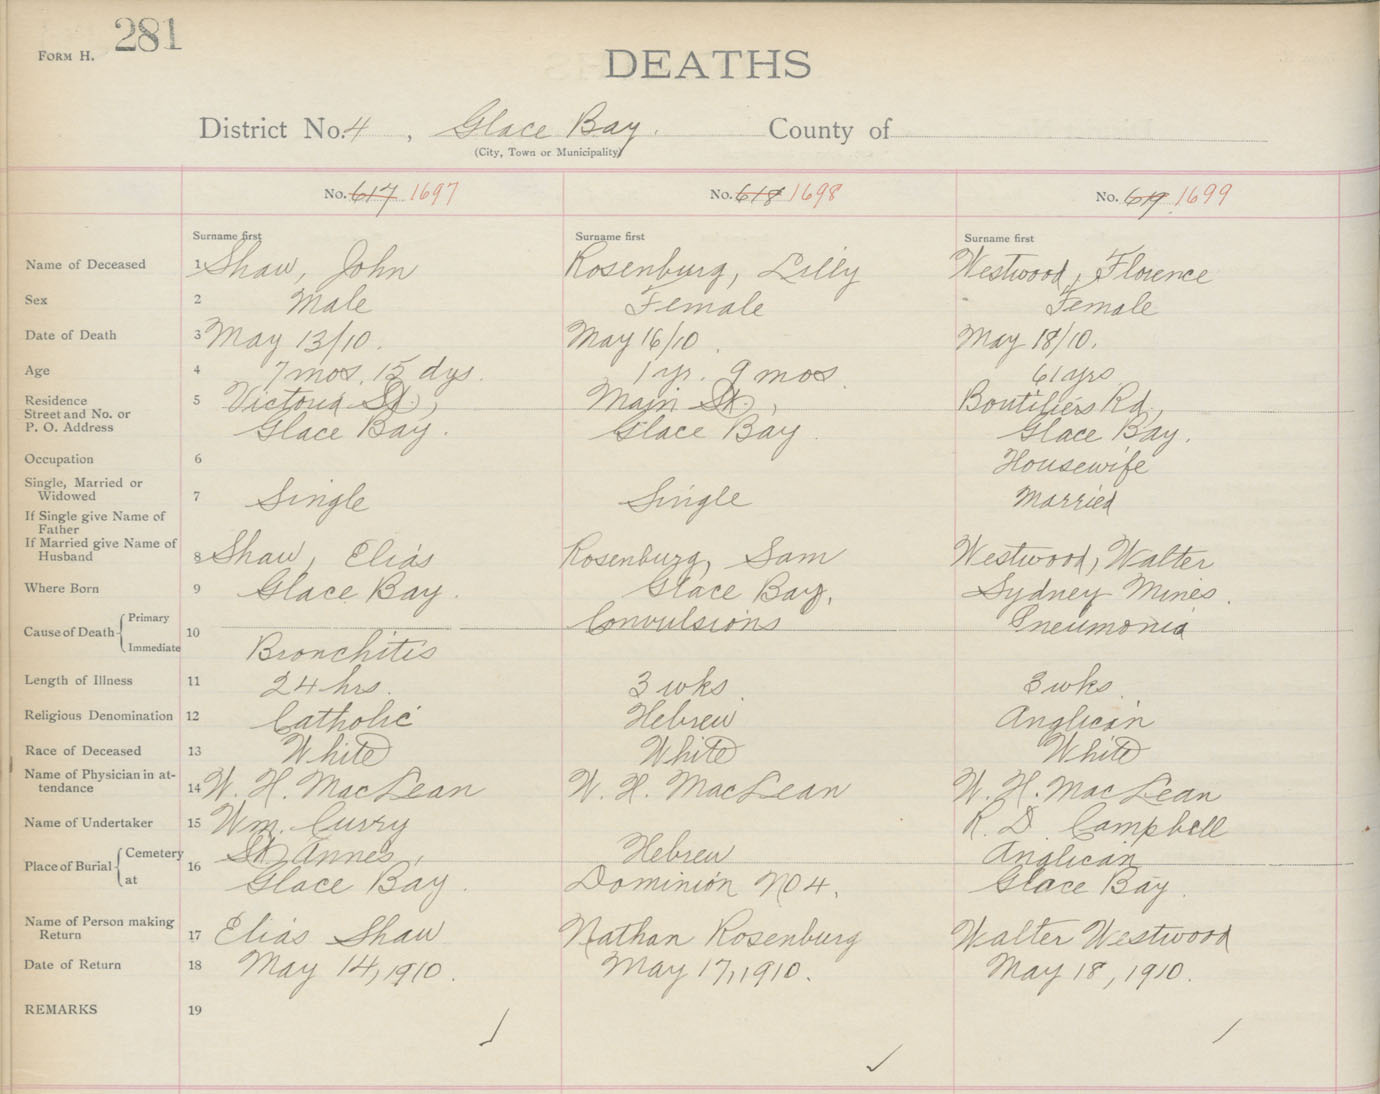 281
FORM H.
DEATHS
District No. 4, Glace Bay. County of
(City, Town or Municipality)
No. 617 1697 No. 618 1698 No. 619 1699
Surname first Surname first Surname first
Name of Deceased 1 Shaw, John Rosenburg, Lilly Westwood, Florence
Sex 2 Male Female Female
Date of Death 3 May 13/10. May 16/10. May 18/10.
Age 4 7 mos. 15 dys. 1 yr. 9 mos. 61 yrs
Residence 5 Victoria St., Main St., Boutiliers Rd.,
Street and No. or
P. O. Address Glace Bay. Glace Bay. Glace Bay.
Occupation 6 Housewife
Single, Married or
Widowed 7 Single Single Married
If Single give Name of
Father
If Married give Name of
Husband 8 Shaw, Elias Rosenburg, Sam Westwood, Walter
Where Born 9 Glace Bay. Glace Bay, Sydney Mines.
Cause of Death Primary 10 Convulsions Pneumonia
Immediate Bronchitis
Length of Illness 11 24 hrs. 3 wks. 3 wks.
Religious Denomination 12 Catholic Hebrew Anglican
Race of Deceased 13 White White White
Name of Physician in at-
tendance 14 W. H. MacLean W. H. MacLean W. H. MacLean
Name of Undertaker 15 Wm. Curry R. D. Campbell
Place of Burial Cemetery 16 St. Annes, Hebrew Anglican
at Glace Bay. Dominion No 4. Glace Bay.
Name of Person making
Return 17 Elias Shaw Nathan Rosenburg Walter Westwood
Date of Return 18 May 14, 1910. May 17, 1910. May 18, 1910.
REMARKS 19